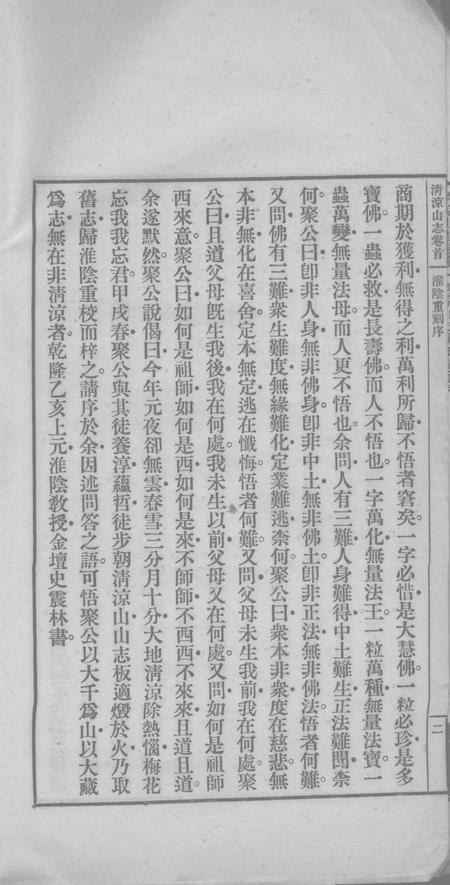 清涼山志卷首　淮陰重刻序　二
商期於獲利無得之利萬利所歸不悟者窘矣一字必惜是大慧佛一粒必珍是多
寶佛一蟲必救是長壽佛而人不悟也一字萬化無量法王一粒萬種無量法寶一
蟲萬變無量法母而人更不悟也余問人有三難人身難得中土難生正法難聞柰
何聚公曰卽非人身無非佛身卽非中土無非佛土卽非正法無非佛法悟者何難
又問佛有三難衆生難度無緣難化定業難逃柰何聚公曰衆本非衆度在慈悲無
本非無化在喜舍定本無定逃在懺悔悟者何難又問父母未生我前我在何處聚
公曰且道父母旣生我後我在何處我未生以前父母又在何處又問如何是祖師
西來意聚公曰如何是祖師如何是西如何是來不師師不西西不來來且道且道
余遂默然聚公說偈曰今年元夜卻無雲春雪三分月十分大地清涼除熱惱梅花
忘我我忘君甲戌春聚公與其徒養淳蘊哲徒步朝淸涼山山志板適燬於火乃取
舊志歸淮陰重校而梓之請序於余因述問答之語可悟聚公以大千爲山以大藏
爲志無在非清涼者乾隆乙亥上元淮陰敎授金壇史震林書